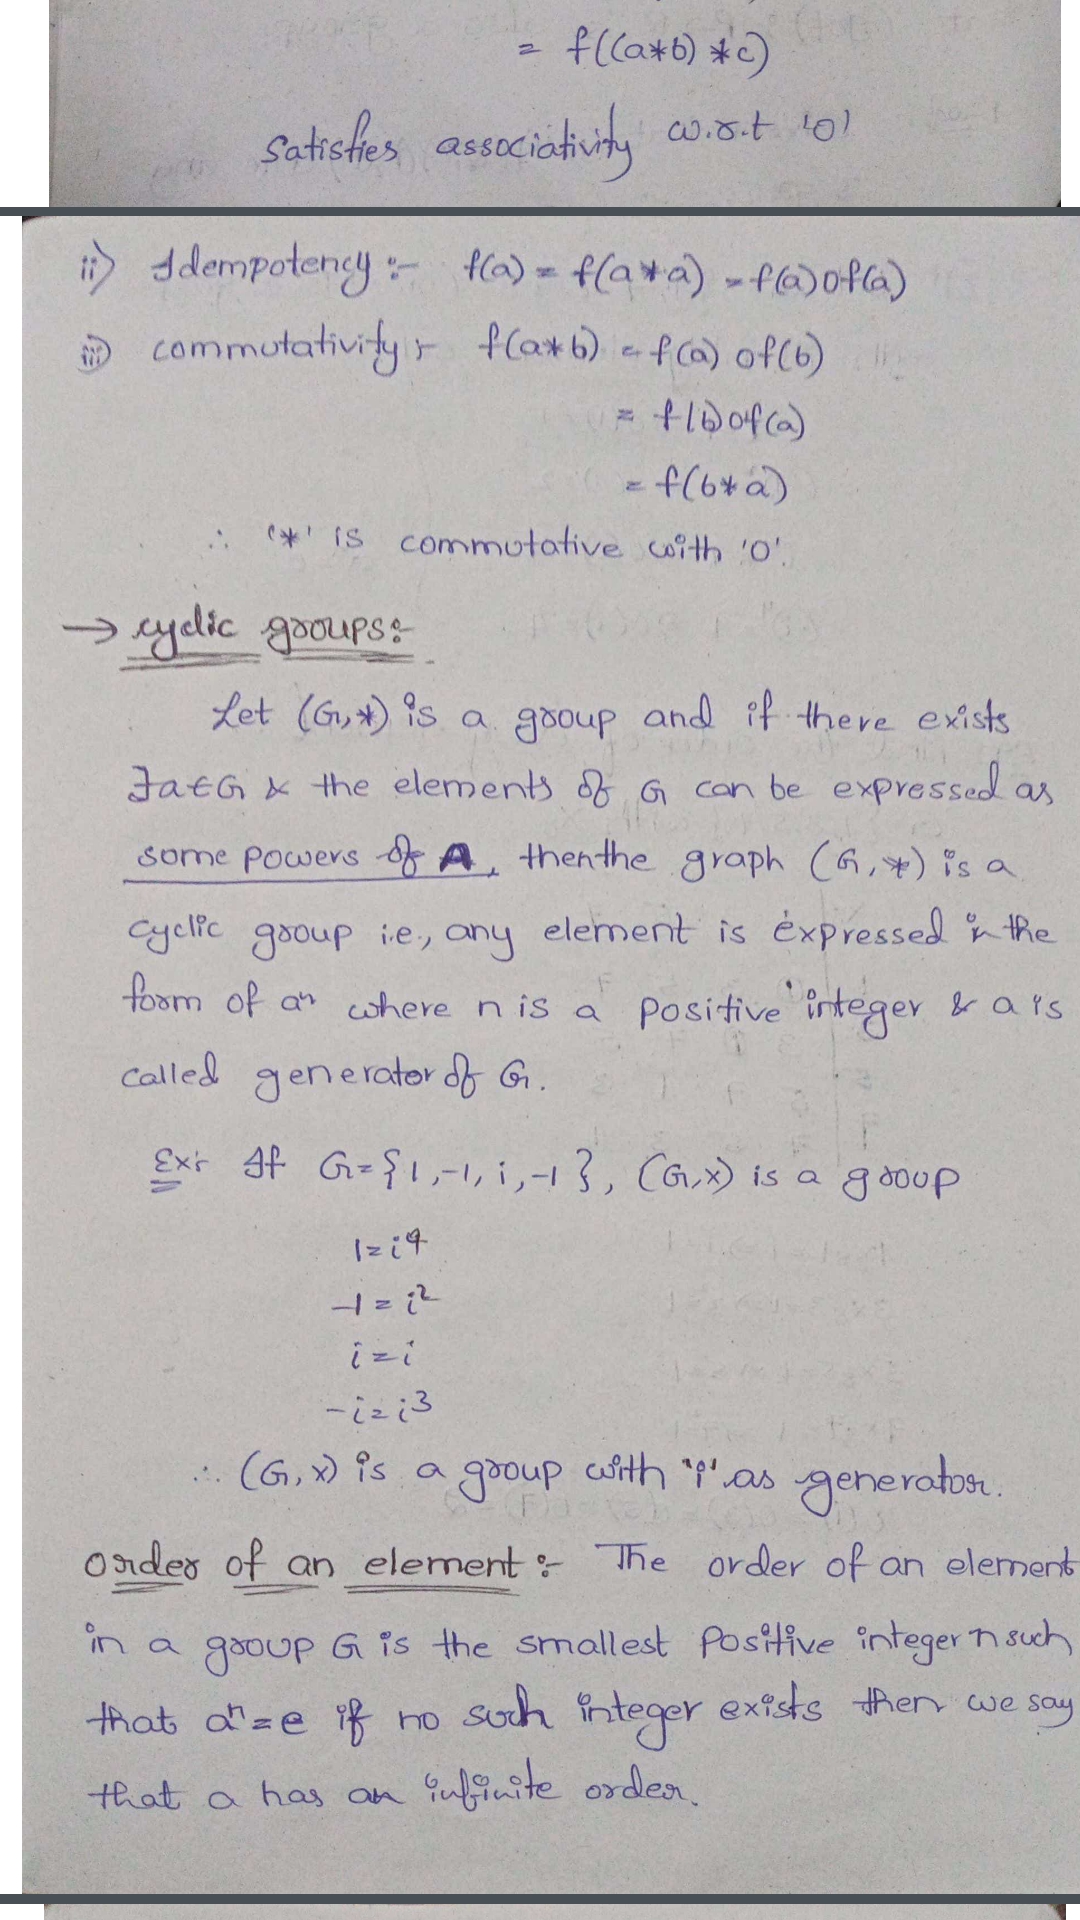 = f((a*b) *c)
Satisfies associativity w.r.t 'o'
ii) Idempotency :- f(a) = f(a*a) = f(a) o f(a)
iii) commutativity :- f(a*b) = f(a) o f(b)
= f(b) o f(a)
= f(b*a)
∴ '*' is commutative with 'o'.
→ cyclic groups:-
Let (G,*) is a group and if there exists
∃a∈G & the elements of G can be expressed as
some powers of A, then the graph (G,*) is a
cyclic group i.e., any element is expressed in the
form of aⁿ where n is a positive integer & a is
called generator of G.
Ex:- If G={1,-1,i,-1}, (G,x) is a group
1=i⁴
-1=i²
i=i
-i=i³
∴ (G,x) is a group with "i" as generator.
Order of an element :- The order of an element
in a group G is the smallest positive integer n such
that aⁿ=e if no such integer exists then we say
that a has an infinite order.